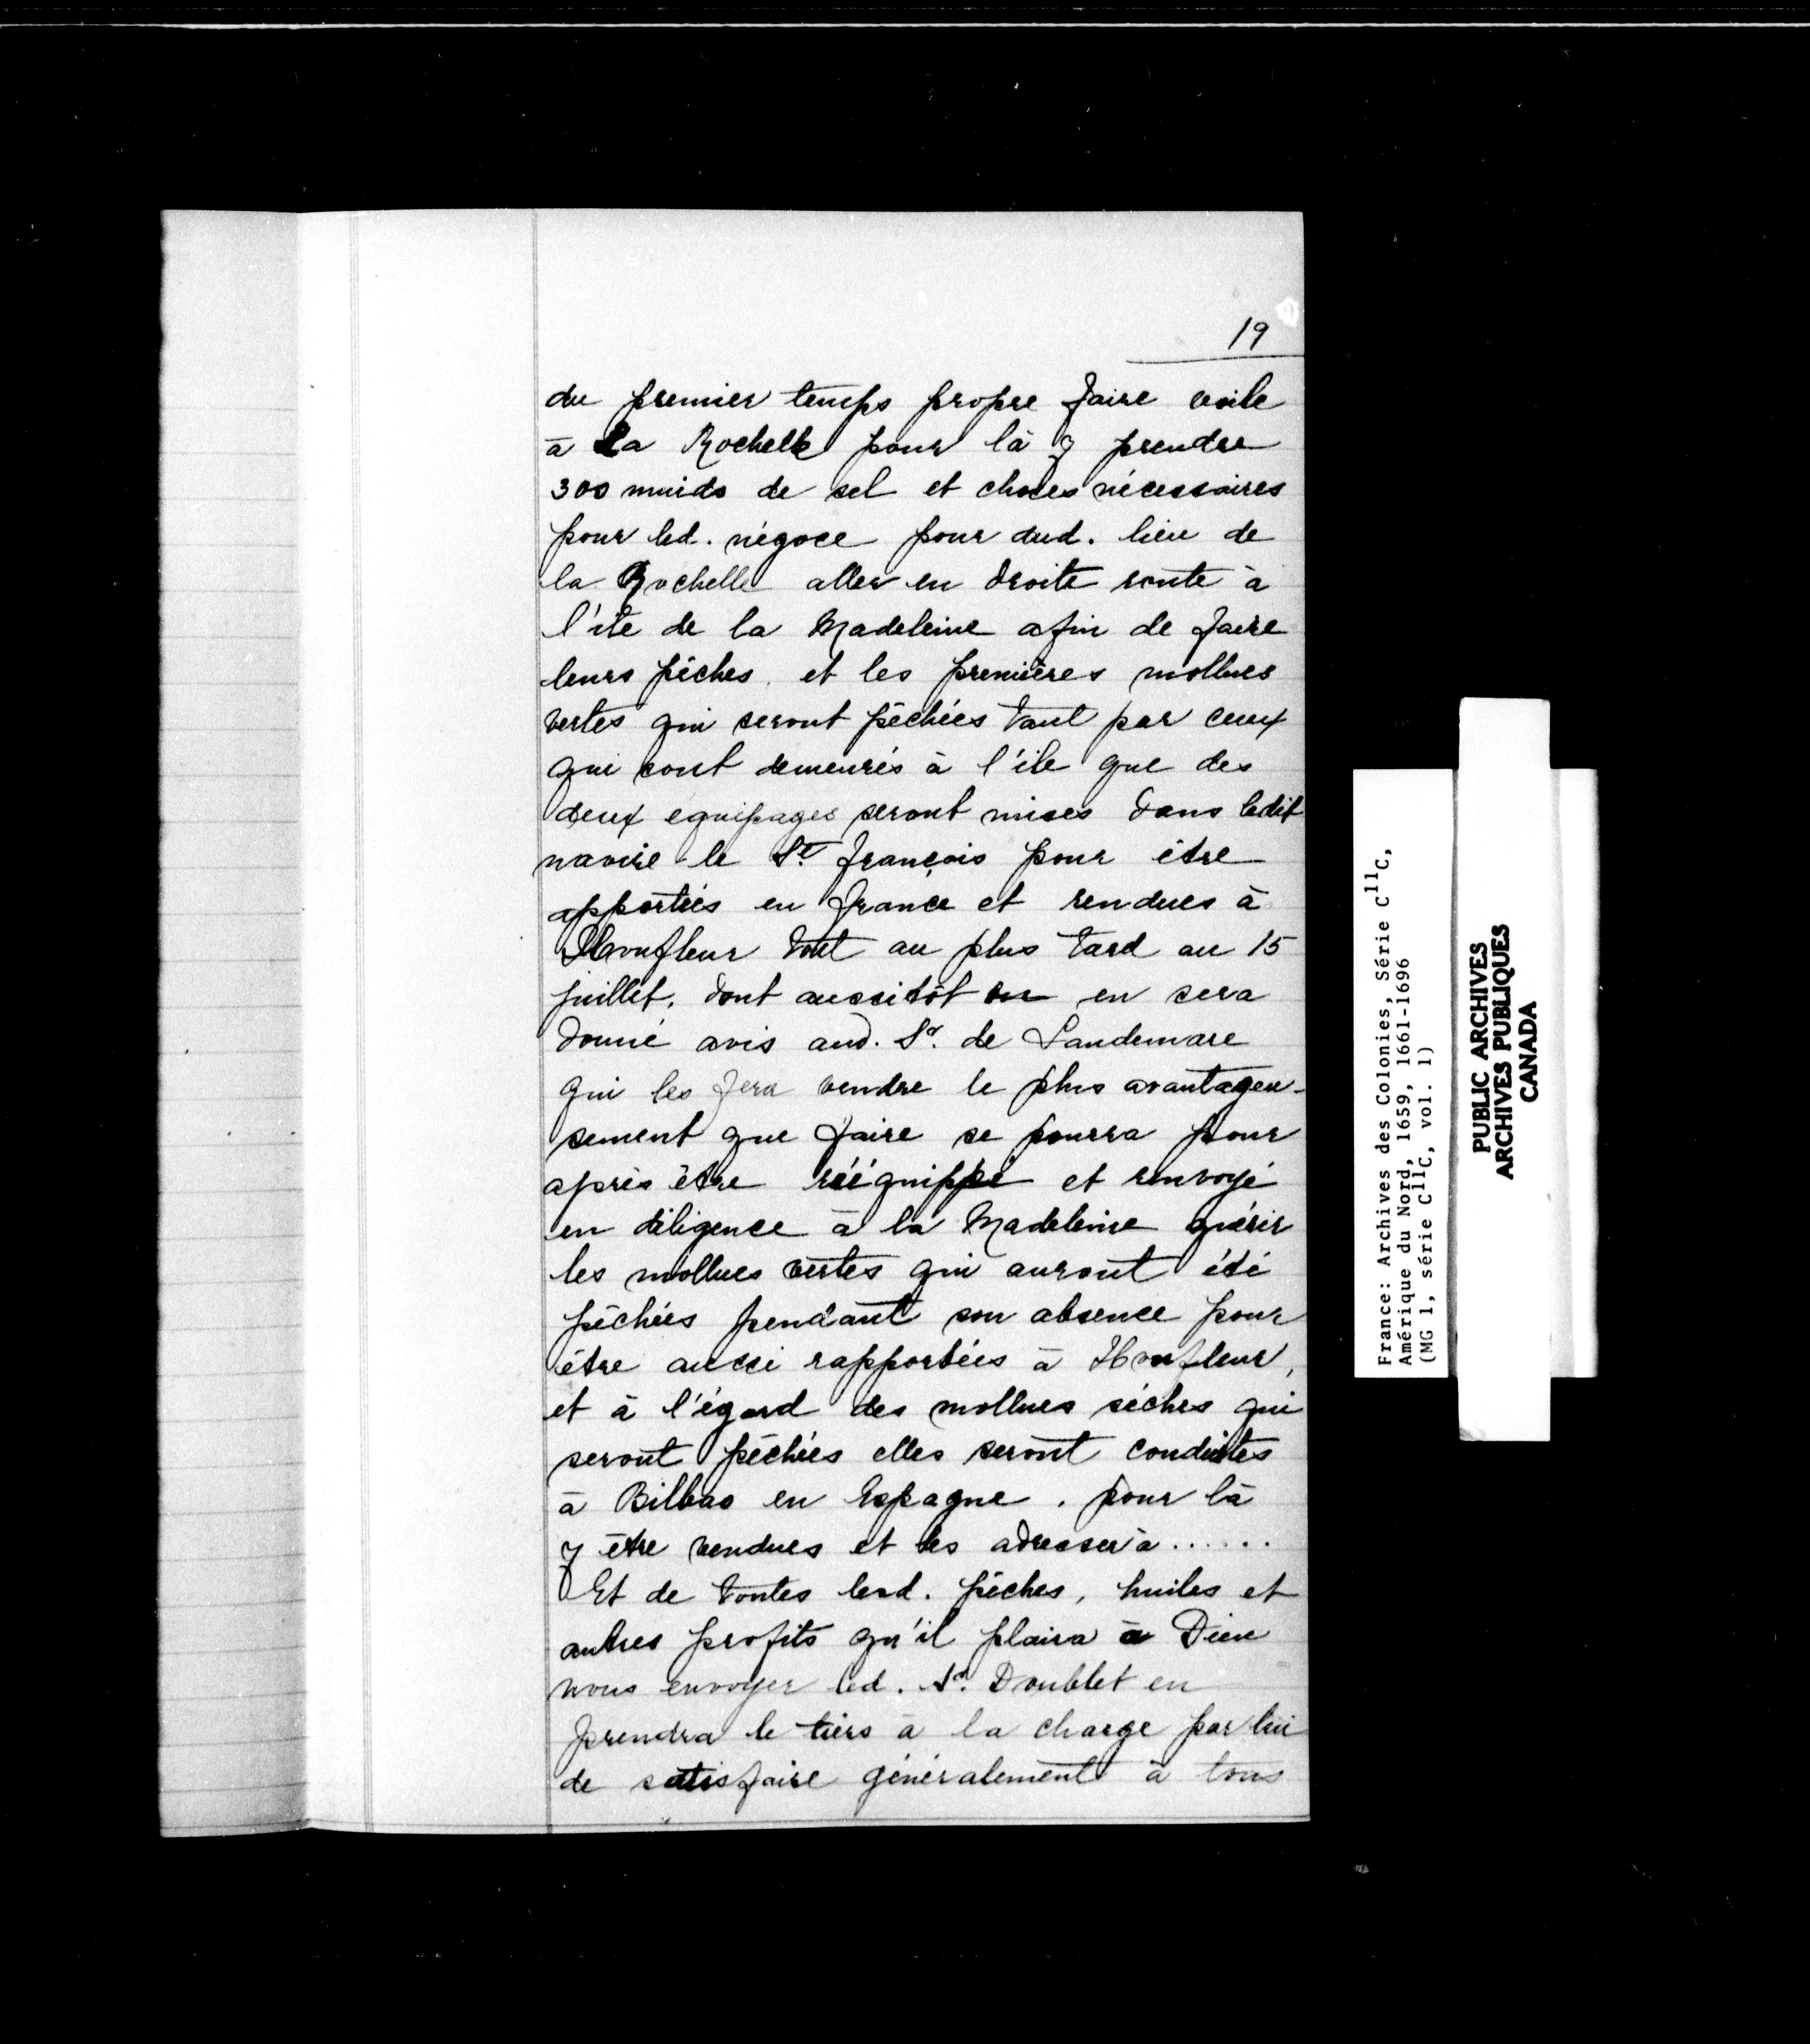 19
du premier temps propre faire voile
à La Rochelle pour là y prendre
300 muids de sel et choses nécessaires
pour led. négoce pour dud. lieu de
la Rochelle aller en droite route à
l'île de la Madeleine afin de faire
leurs pêches, et les premières mollues
vertes qui seront pêchées tant par ceux
qui sont demeurés à l'île que des
deux equipages seront mises dans ledit
navire le St. françois pour être
apportées en france et rendues à
Honfleur tout au plus tard au 15
juillet, dont aussitôt on en sera
donné avis aud. Sr. de Landemare
qui les fera vendre le plus avantageu-
sement que faire se pourra pour
après être rééquippé et renvoyé
en diligence à la Madeleine quérir
les mollues vertes qui auront été
pêchées pendant son absence pour
être aussi rapportées à Honfleur,
et à l'égard des mollues sèches qui
seront pêchées elles seront conduites
à Bilbao en Espagne, pour là
y être vendues et les adresser à ......
Et de toutes lesd. pêches, huiles et
autres profits qu'il plaira à Dieu
nous envoyer led. Sr. Doublet en
prendra le tiers à la charge par lui
de satisfaire généralement à tous
France: Archives des Colonies, Série C11C,
Amérique du Nord, 1659, 1661-1696
(MG 1, série C11C, vol. 1)
PUBLIC ARCHIVES
ARCHIVES PUBLIQUES
CANADA